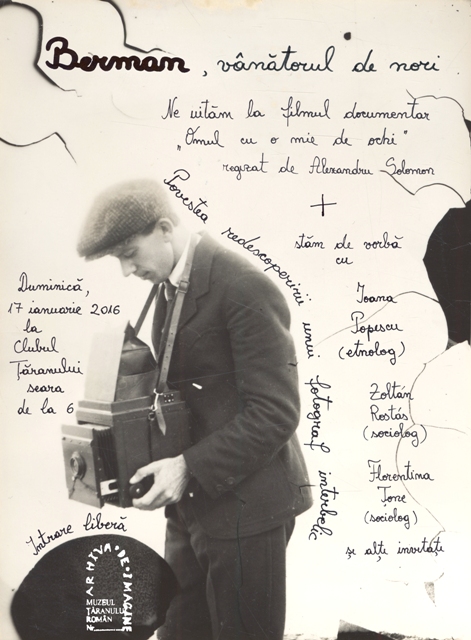 Berman, vânătorul de nori
Ne uităm la filmul documentar
„Omul cu o mie de ochi"
regizat de Alexandru Solomon
+
Povestea redescoperirii unui fotograf interbelic
stăm de vorbă
cu
Ioana
Popescu
(etnolog)
Zoltán
Rostás
(sociolog)
Florentina
Țone
(sociolog)
și alți invitați
Duminică,
17 ianuarie 2016
la
Clubul
Țăranului
seara
de la 6
Intrare liberă
ARHIVA·DE·IMAGINE
MUZEUL
ȚĂRANULUI
ROMÂN